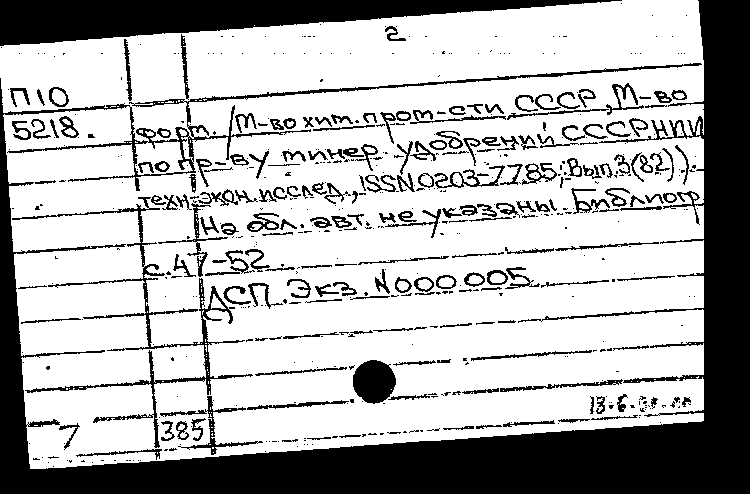 2
П10
5218.
форм. /М-во хим. пром-сти СССР, М-во
по пр-ву минер. удобрений СССР. НИИ
техн.-экон. исслед., ISSN 0203-7785; Вып. 3(82)).
На обл. авт. не указаны. Библиогр
с. 47-52.
ДСП. Экз. N000005
7 385